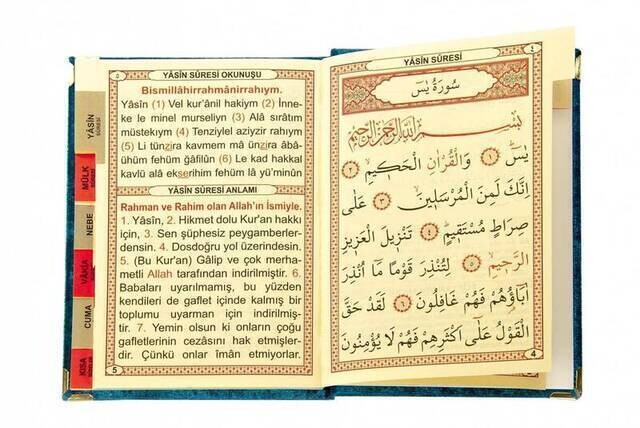 YÂSİN SÛRESİ
٤
سُورَةُ يٰسٓ
بِسْمِ اللّٰهِ الرَّحْمٰنِ الرَّحِيمِ
يٰسٓ ﴿١﴾ وَالْقُرْاٰنِ الْحَكِيمِ ﴿٢﴾
اِنَّكَ لَمِنَ الْمُرْسَلِينَ ﴿٣﴾ عَلٰى
صِرَاطٍ مُسْتَقِيمٍ ﴿٤﴾ تَنْزِيلَ الْعَزِيزِ
الرَّحِيمِ ﴿٥﴾ لِتُنْذِرَ قَوْمًا مَٓا اُنْذِرَ
اٰبَٓاؤُهُمْ فَهُمْ غَافِلُونَ ﴿٦﴾ لَقَدْ حَقَّ
الْقَوْلُ عَلٰٓى اَكْثَرِهِمْ فَهُمْ لَا يُؤْمِنُونَ
4
٥
YÂSİN SÛRESİ OKUNUŞU
Bismillâhirrahmânirrahıym.
Yâsîn (1) Vel kur'ânil hakiym (2) İnne-
ke le minel murseliyn (3) Alâ sırâtım
müstekıym (4) Tenziylel aziyzir rahıym
(5) Li tünzira kavmem mâ ünzira âbâ-
ühüm fehüm ğâfilûn (6) Le kad hakkal
kavlü alâ ekserihim fehüm lâ yü'minûn
YÂSİN SÛRESİ ANLAMI
Rahman ve Rahim olan Allah'ın İsmiyle.
1. Yâsîn, 2. Hikmet dolu Kur'an hakkı
için, 3. Sen şüphesiz peygamberler-
densin. 4. Dosdoğru yol üzerindesin.
5. (Bu Kur'an) Gâlip ve çok merha-
metli Allah tarafından indirilmiştir. 6.
Babaları uyarılmamış, bu yüzden
kendileri de gaflet içinde kalmış bir
toplumu uyarman için indirilmiş-
tir. 7. Yemin olsun ki onların çoğu
gafletlerinin cezasını hak etmişler-
dir. Çünkü onlar îmân etmiyorlar.
5
YÂSİN
SÛRESİ
MÜLK
SÛRESİ
NEBE
VÂKIA
CUMA
KISA
SÛRELER